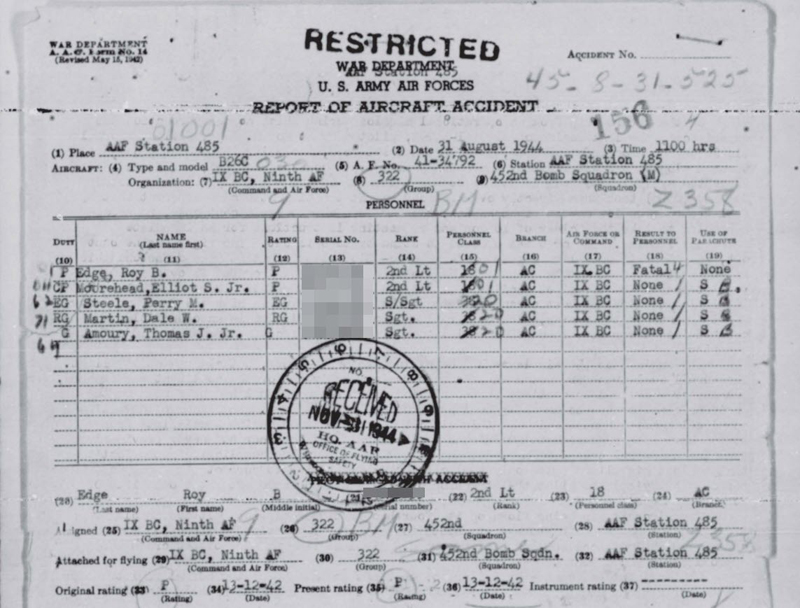 WAR DEPARTMENT
A. A. F. Form No. 14
(Revised May 15, 1942)
RESTRICTED
WAR DEPARTMENT
AAF Station 485
U. S. ARMY AIR FORCES
REPORT OF AIRCRAFT ACCIDENT
ACCIDENT NO.
45-8-31-525
01001
156
4
(1) Place AAF Station 485 (2) Date 31 August 1944 (3) Time 1100 hrs
AIRCRAFT: (4) Type and model B26C 030 (5) A. F. No. 41-34792 (6) Station AAF Station 485
Organization: (7) IX BC, Ninth AF (8) 322 (9) 452nd Bomb Squadron (M)
(Command and Air Force) (Group) (Squadron)
9 BM Z 358
PERSONNEL
DUTY NAME (Last name first) RATING SERIAL NO. RANK PERSONNEL CLASS BRANCH AIR FORCE OR COMMAND RESULT TO PERSONNEL USE OF PARACHUTE
(10) (11) (12) (13) (14) (15) (16) (17) (18) (19)
P Edge, Roy B. P 2nd Lt 01 AC IX BC Fatal 4 None
CP Mourehead, Elliot S. Jr. P 2nd Lt 01 AC IX BC None 1 S
62 EG Steele, Perry M. EG S/Sgt 20 AC IX BC None 1 S
71 RG Martin, Dale W. RG Sgt. 20 AC IX BC None 1 S
G Amoury, Thomas J. Jr. G Sgt. 20 AC IX BC None 1 S
NO.
RECEIVED
NOV 3 1944
HQ. AAF
OFFICE OF FLYING
SAFETY
(20) Edge Roy B (21) (22) 2nd Lt (23) 18 (24) AC
(Last name) (First name) (Middle initial) (Serial number) (Rank) (Personnel class) (Branch)
Assigned (25) IX BC, Ninth AF 9 (26) 322 BM (27) 452nd (28) AAF Station 485
(Command and Air Force) (Group) (Squadron) (Station)
Z 358
Attached for flying (29) IX BC, Ninth AF (30) 322 (31) 452nd Bomb Sqdn. (32) AAF Station 485
(Command and Air Force) (Group) (Squadron) (Station)
Original rating (33) P (34) 13-12-42 Present rating (35) P (36) 13-12-42 Instrument rating (37) ---------
(Rating) (Date) (Rating) (Date) (Date)